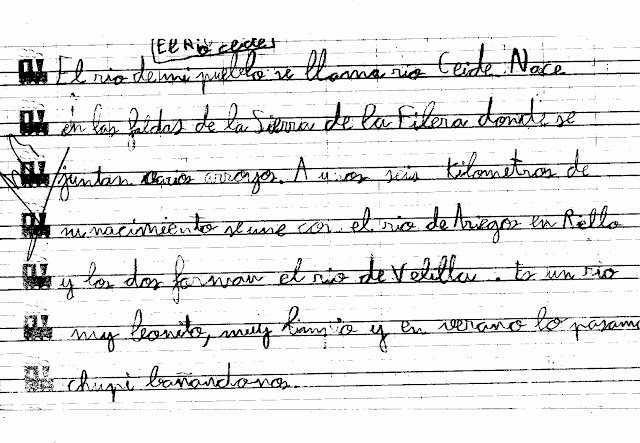 El Rio ceide
El rio de mi pueblo se llama rio Ceide Nace
en las faldas de la Sierra de la Filera donde se
juntan varios arroyos. A unos seis Kilometros de
su nacimiento se une con el rio de Ariegos en Riello
y los dos forman el rio de Velilla. Es un rio
muy bonito, muy limpio y en verano lo pasamo
chupi bañandonos.